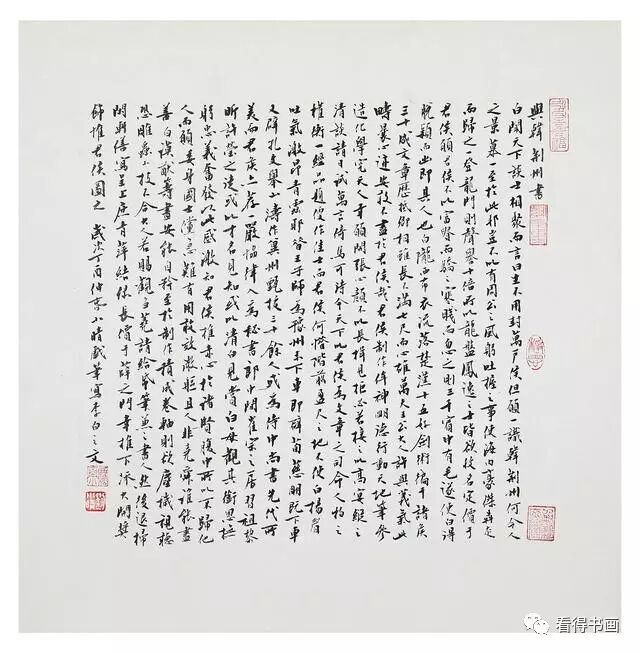 與韓荆州書
白聞天下談士相聚而言曰生不用封萬戶侯但願一識韓荆州何令人
之景慕一至於此耶豈不以有周公之風躬吐握之事使海內豪傑奔走
而歸之一登龍門則聲譽十倍所以龍盤鳳逸之士皆欲收名定價于
君侯願君侯不以富貴而驕之寒賤而忽之則三千賓中有毛遂使白得
脫穎而出即其人也白隴西布衣流落楚漢十五好劍術徧干諸侯
三十成文章歷抵卿相雖長不滿七尺而心雄萬夫王公大人許與義氣此
疇曩心迹安敢不盡於君侯哉君侯制作侔神明德行動天地筆參
造化學究天人幸願開張心顏不以長揖見拒必若接之以高宴縱之以
清談請日試萬言倚馬可待今天下以君侯為文章之司命人物之
權衡一經品題便作佳士而君侯何惜階前盈尺之地不使白揚眉
吐氣激昂青雲耶昔王子師為豫州未下車即辟荀慈明既下車
又辟孔文舉山濤作冀州甄拔三十餘人或為侍中尚書先代所
美而君侯亦薦一嚴協律入為秘書郎中間崔宗之房習祖黎
昕許瑩之徒或以才名見知或以清白見賞白每觀其銜恩撫
躬忠義奮發以此感激知君侯推赤心於諸賢腹中所以不歸他
人而願委身國士儻急難有用敢效微軀且人非堯舜誰能盡
善白謨猷籌畫安能自矜至於制作積成卷軸則欲塵穢視聽
恐雕蟲小技不合大人若賜觀芻蕘請給紙筆兼之書人然後退掃
閑軒繕寫呈上庶青萍結綠長價于薛卞之門幸推下流大開獎
飾惟君侯圖之 歲次丁酉仲春 筆寫李白之文
看得书画